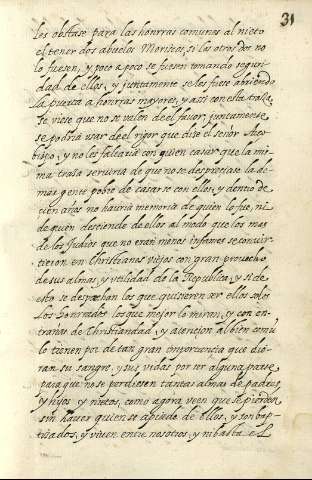 31
les obstase para las honrras comunes al nieto
el tener dos abuelos Moriscos, si los otros dos no
lo fuesen, y poco a poco se fuesen tomando seguri
dad de ellos, y juntamente se les fuese abriendo
la puerta a honrras mayores, y assi con esta traza,
se viese que no se valen de el favor, juntamente
se podria usar de el rigor que dize el señor Arço
bispo, y no les faltaria con quien casar que la mis
ma traza serviria de que no se despreciase la de
mas gente pobre de casarse con ellos, y dentro de
cien años no hauria memoria de quien lo fue, ni
de quien desciende de ellos al modo que los mas
de los Judios que no eran menos infames se convir
tieron en Christianos viejos con gran provecho
de sus almas, y utilidad de la Republica, y si de
esto se despechan los que quisieren ser ellos solos
los honrados los que mejor lo miran, y con en
trañas de Christiandad, y atencion al bien comū
lo tienen por de tan gran importancia que die
ran su sangre, y sus vidas por ser alguna parte
para que no se perdiesen tantas almas de padres,
y hijos y nietos, como agora veen que se pierden
sin hauer quien se apiede de ellos, y son bap-
tizados, y viven entre nosotros, y no basta el